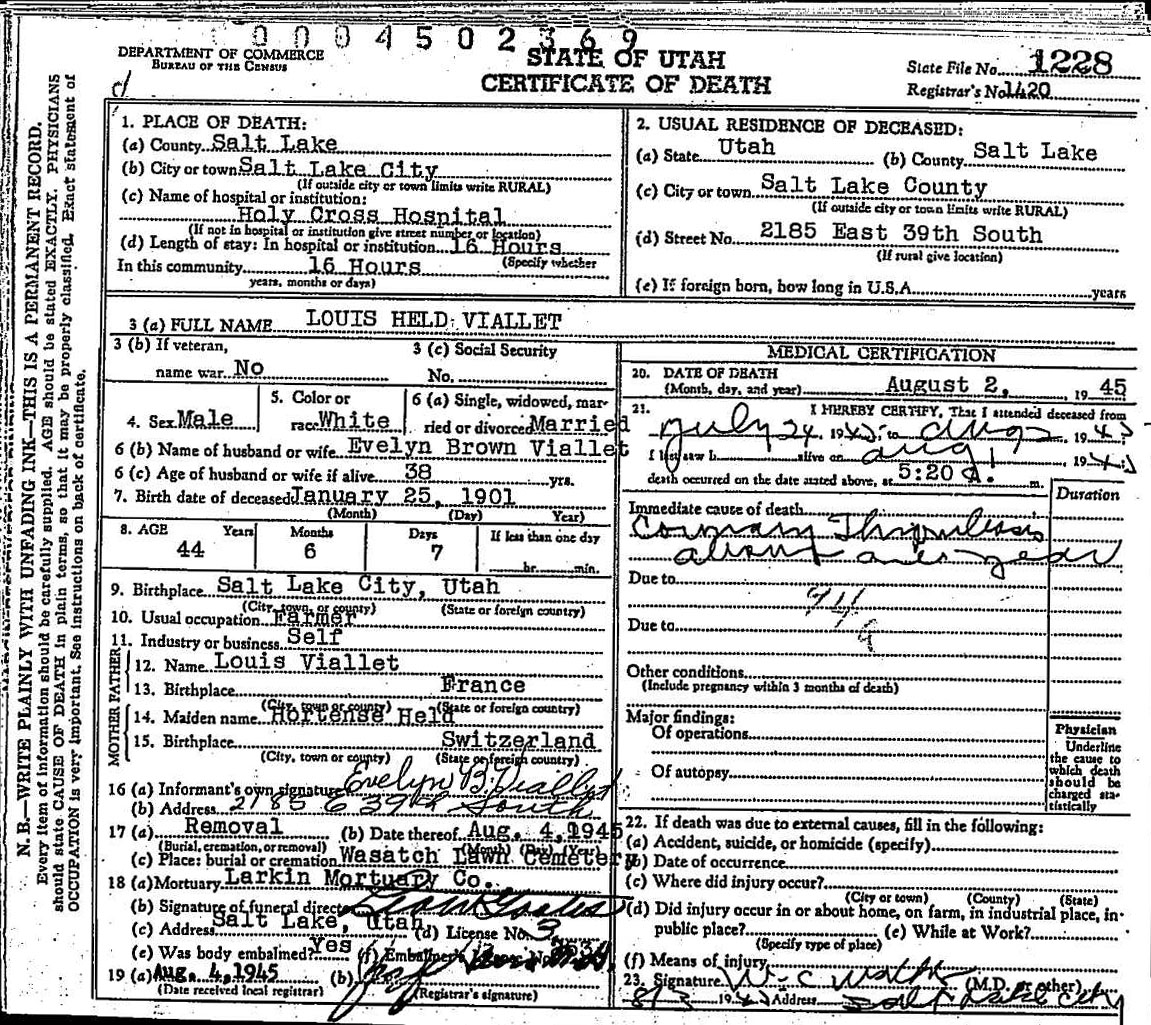 0004502369
DEPARTMENT OF COMMERCE
BUREAU OF THE CENSUS
STATE OF UTAH
CERTIFICATE OF DEATH
State File No. 1228
Registrar's No. 1420
N. B.—WRITE PLAINLY WITH UNFADING INK—THIS IS A PERMANENT RECORD.
Every item of information should be carefully supplied. AGE should be stated EXACTLY. PHYSICIANS
should state CAUSE OF DEATH in plain terms, so that it may be properly classified. Exact statement of
OCCUPATION is very important. See instructions on back of certificate.
1. PLACE OF DEATH:
(a) County Salt Lake
(b) City or town Salt Lake City
(If outside city or town limits write RURAL)
(c) Name of hospital or institution:
Holy Cross Hospital
(If not in hospital or institution give street number or location)
(d) Length of stay: In hospital or institution 16 Hours
(Specify whether
In this community 16 Hours
years, months or days)
2. USUAL RESIDENCE OF DECEASED:
(a) State Utah (b) County Salt Lake
(c) City or town Salt Lake County
(If outside city or town limits write RURAL)
(d) Street No. 2185 East 39th South
(If rural give location)
(e) If foreign born, how long in U.S.A. years
3 (a) FULL NAME LOUIS HELD VIALLET
3 (b) If veteran,
name war No
3 (c) Social Security
No.
4. Sex Male
5. Color or
race White
6 (a) Single, widowed, mar-
ried or divorced Married
6 (b) Name of husband or wife Evelyn Brown Viallet
6 (c) Age of husband or wife if alive 38 yrs.
7. Birth date of deceased January 25, 1901
(Month) (Day) Year)
8. AGE Years Months Days If less than one day
44 6 7 hr. min.
9. Birthplace Salt Lake City, Utah
(City, town, or county) (State or foreign country)
10. Usual occupation Farmer
11. Industry or business Self
FATHER
12. Name Louis Viallet
13. Birthplace France
(City, town or county) (State or foreign country)
MOTHER
14. Maiden name Hortense Held
15. Birthplace Switzerland
(City, town or county) (State or foreign country)
16 (a) Informant's own signature Evelyn B. Viallet
(b) Address 2185 E 39th South
17 (a) Removal (b) Date thereof Aug. 4, 1945
(Burial, cremation, or removal) (Month) (Day) (Year)
(c) Place: burial or cremation Wasatch Lawn Cemetery
18 (a) Mortuary Larkin Mortuary Co.
(b) Signature of funeral director
(c) Address Salt Lake, Utah (d) License No. 3
(e) Was body embalmed? Yes (f) Embalmer's License No.
19 (a) Aug. 4, 1945 (b)
(Date received local registrar) (Registrar's signature)
MEDICAL CERTIFICATION
20. DATE OF DEATH
(Month, day, and year) August 2, 1945
21. I HEREBY CERTIFY, That I attended deceased from
July 24 1945, to Aug 2 1945
I last saw h alive on Aug 1 1945
death occurred on the date stated above, at 5:20 A. m.
Duration
Immediate cause of death
Coronary Thrombosis
about one year
Due to
Due to
Other conditions
(Include pregnancy within 3 months of death)
Major findings:
Of operations
Of autopsy
Physician
Underline
the cause to
which death
should be
charged sta-
tistically
22. If death was due to external causes, fill in the following:
(a) Accident, suicide, or homicide (specify)
(b) Date of occurrence
(c) Where did injury occur?
(City or town) (County) (State)
(d) Did injury occur in or about home, on farm, in industrial place, in
public place? (e) While at Work?
(Specify type of place)
(f) Means of injury
23. Signature W. C. Walth (M.D. or other)
8/3 1945 Address Salt Lake City